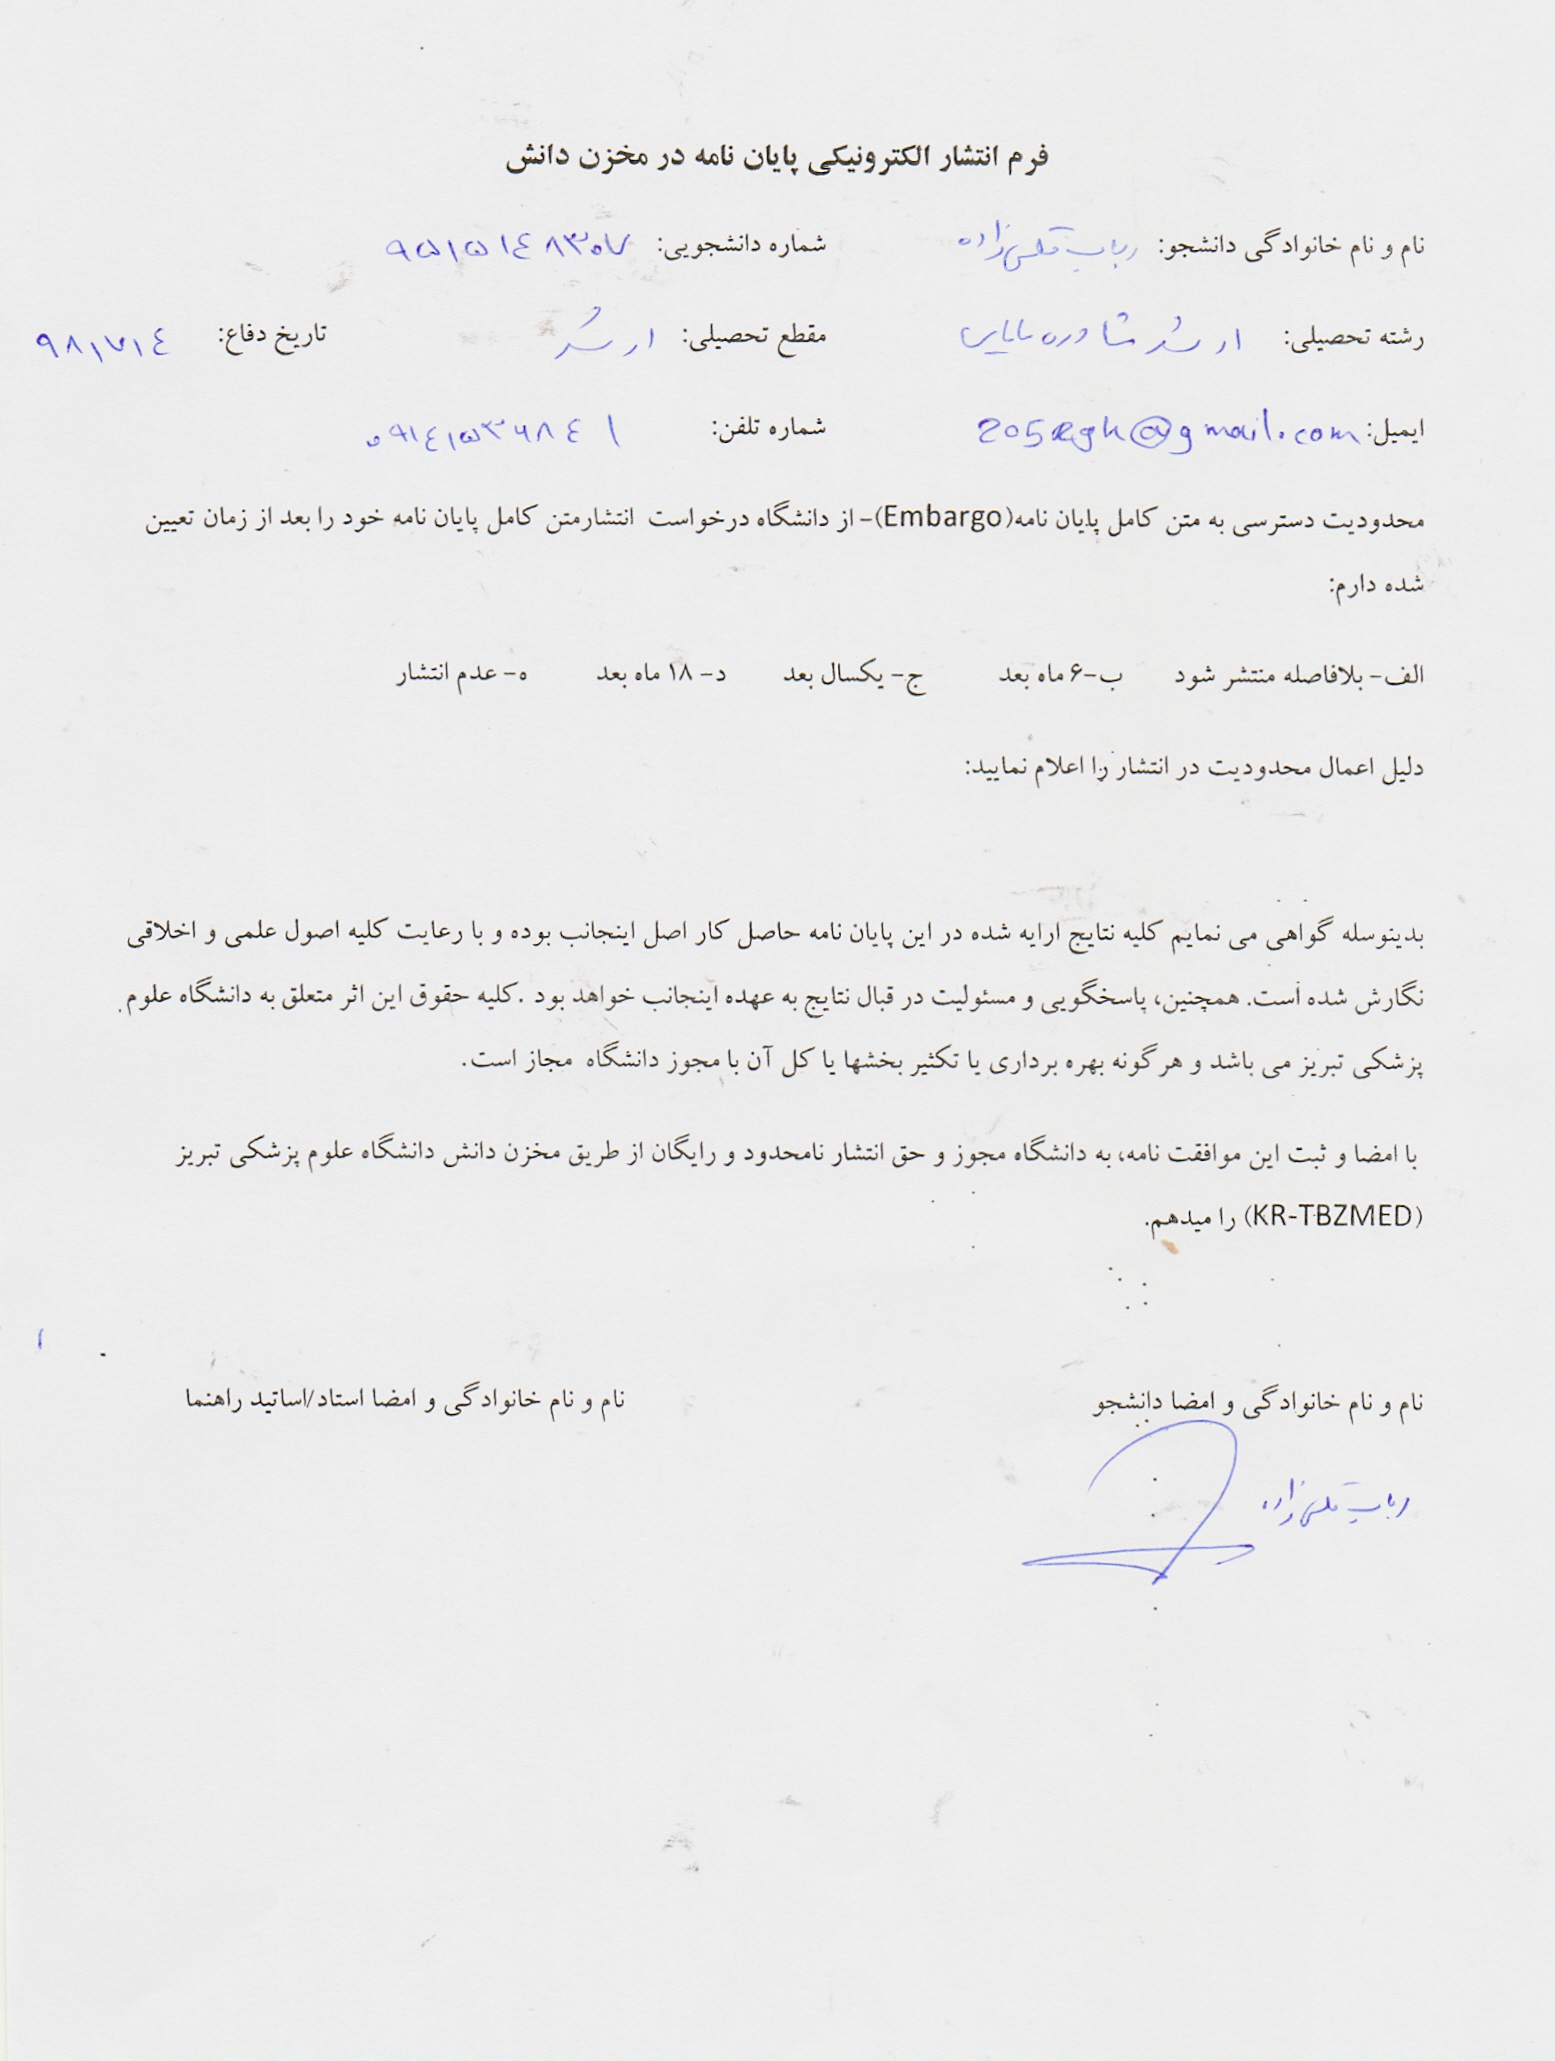 فرم انتشار الکترونیکی پایان نامه در مخزن دانش
نام و نام خانوادگی دانشجو: رباب قلی‌زاده شماره دانشجویی: ۹۵۱۵۱۴۸۳۰۷
رشته تحصیلی: ارشد مشاوره مامایی مقطع تحصیلی: ارشد تاریخ دفاع: ۹۸/۷/۱۴
ایمیل: @gmail.com شماره تلفن: ۰۹۱۴۱۵۳۶۸۴۱
محدودیت دسترسی به متن کامل پایان نامه(Embargo)- از دانشگاه درخواست انتشارمتن کامل پایان نامه خود را بعد از زمان تعیین
شده دارم:
الف- بلافاصله منتشر شود ب-۶ ماه بعد ج- یکسال بعد د- ۱۸ ماه بعد ه- عدم انتشار
دلیل اعمال محدودیت در انتشار را اعلام نمایید:
بدینوسله گواهی می نمایم کلیه نتایج ارایه شده در این پایان نامه حاصل کار اصل اینجانب بوده و با رعایت کلیه اصول علمی و اخلاقی
نگارش شده است. همچنین، پاسخگویی و مسئولیت در قبال نتایج به عهده اینجانب خواهد بود .کلیه حقوق این اثر متعلق به دانشگاه علوم
پزشکی تبریز می باشد و هرگونه بهره برداری یا تکثیر بخشها یا کل آن با مجوز دانشگاه مجاز است.
با امضا و ثبت این موافقت نامه، به دانشگاه مجوز و حق انتشار نامحدود و رایگان از طریق مخزن دانش دانشگاه علوم پزشکی تبریز
(KR-TBZMED) را میدهم.
نام و نام خانوادگی و امضا دانشجو نام و نام خانوادگی و امضا استاد/اساتید راهنما
رباب قلی‌زاده